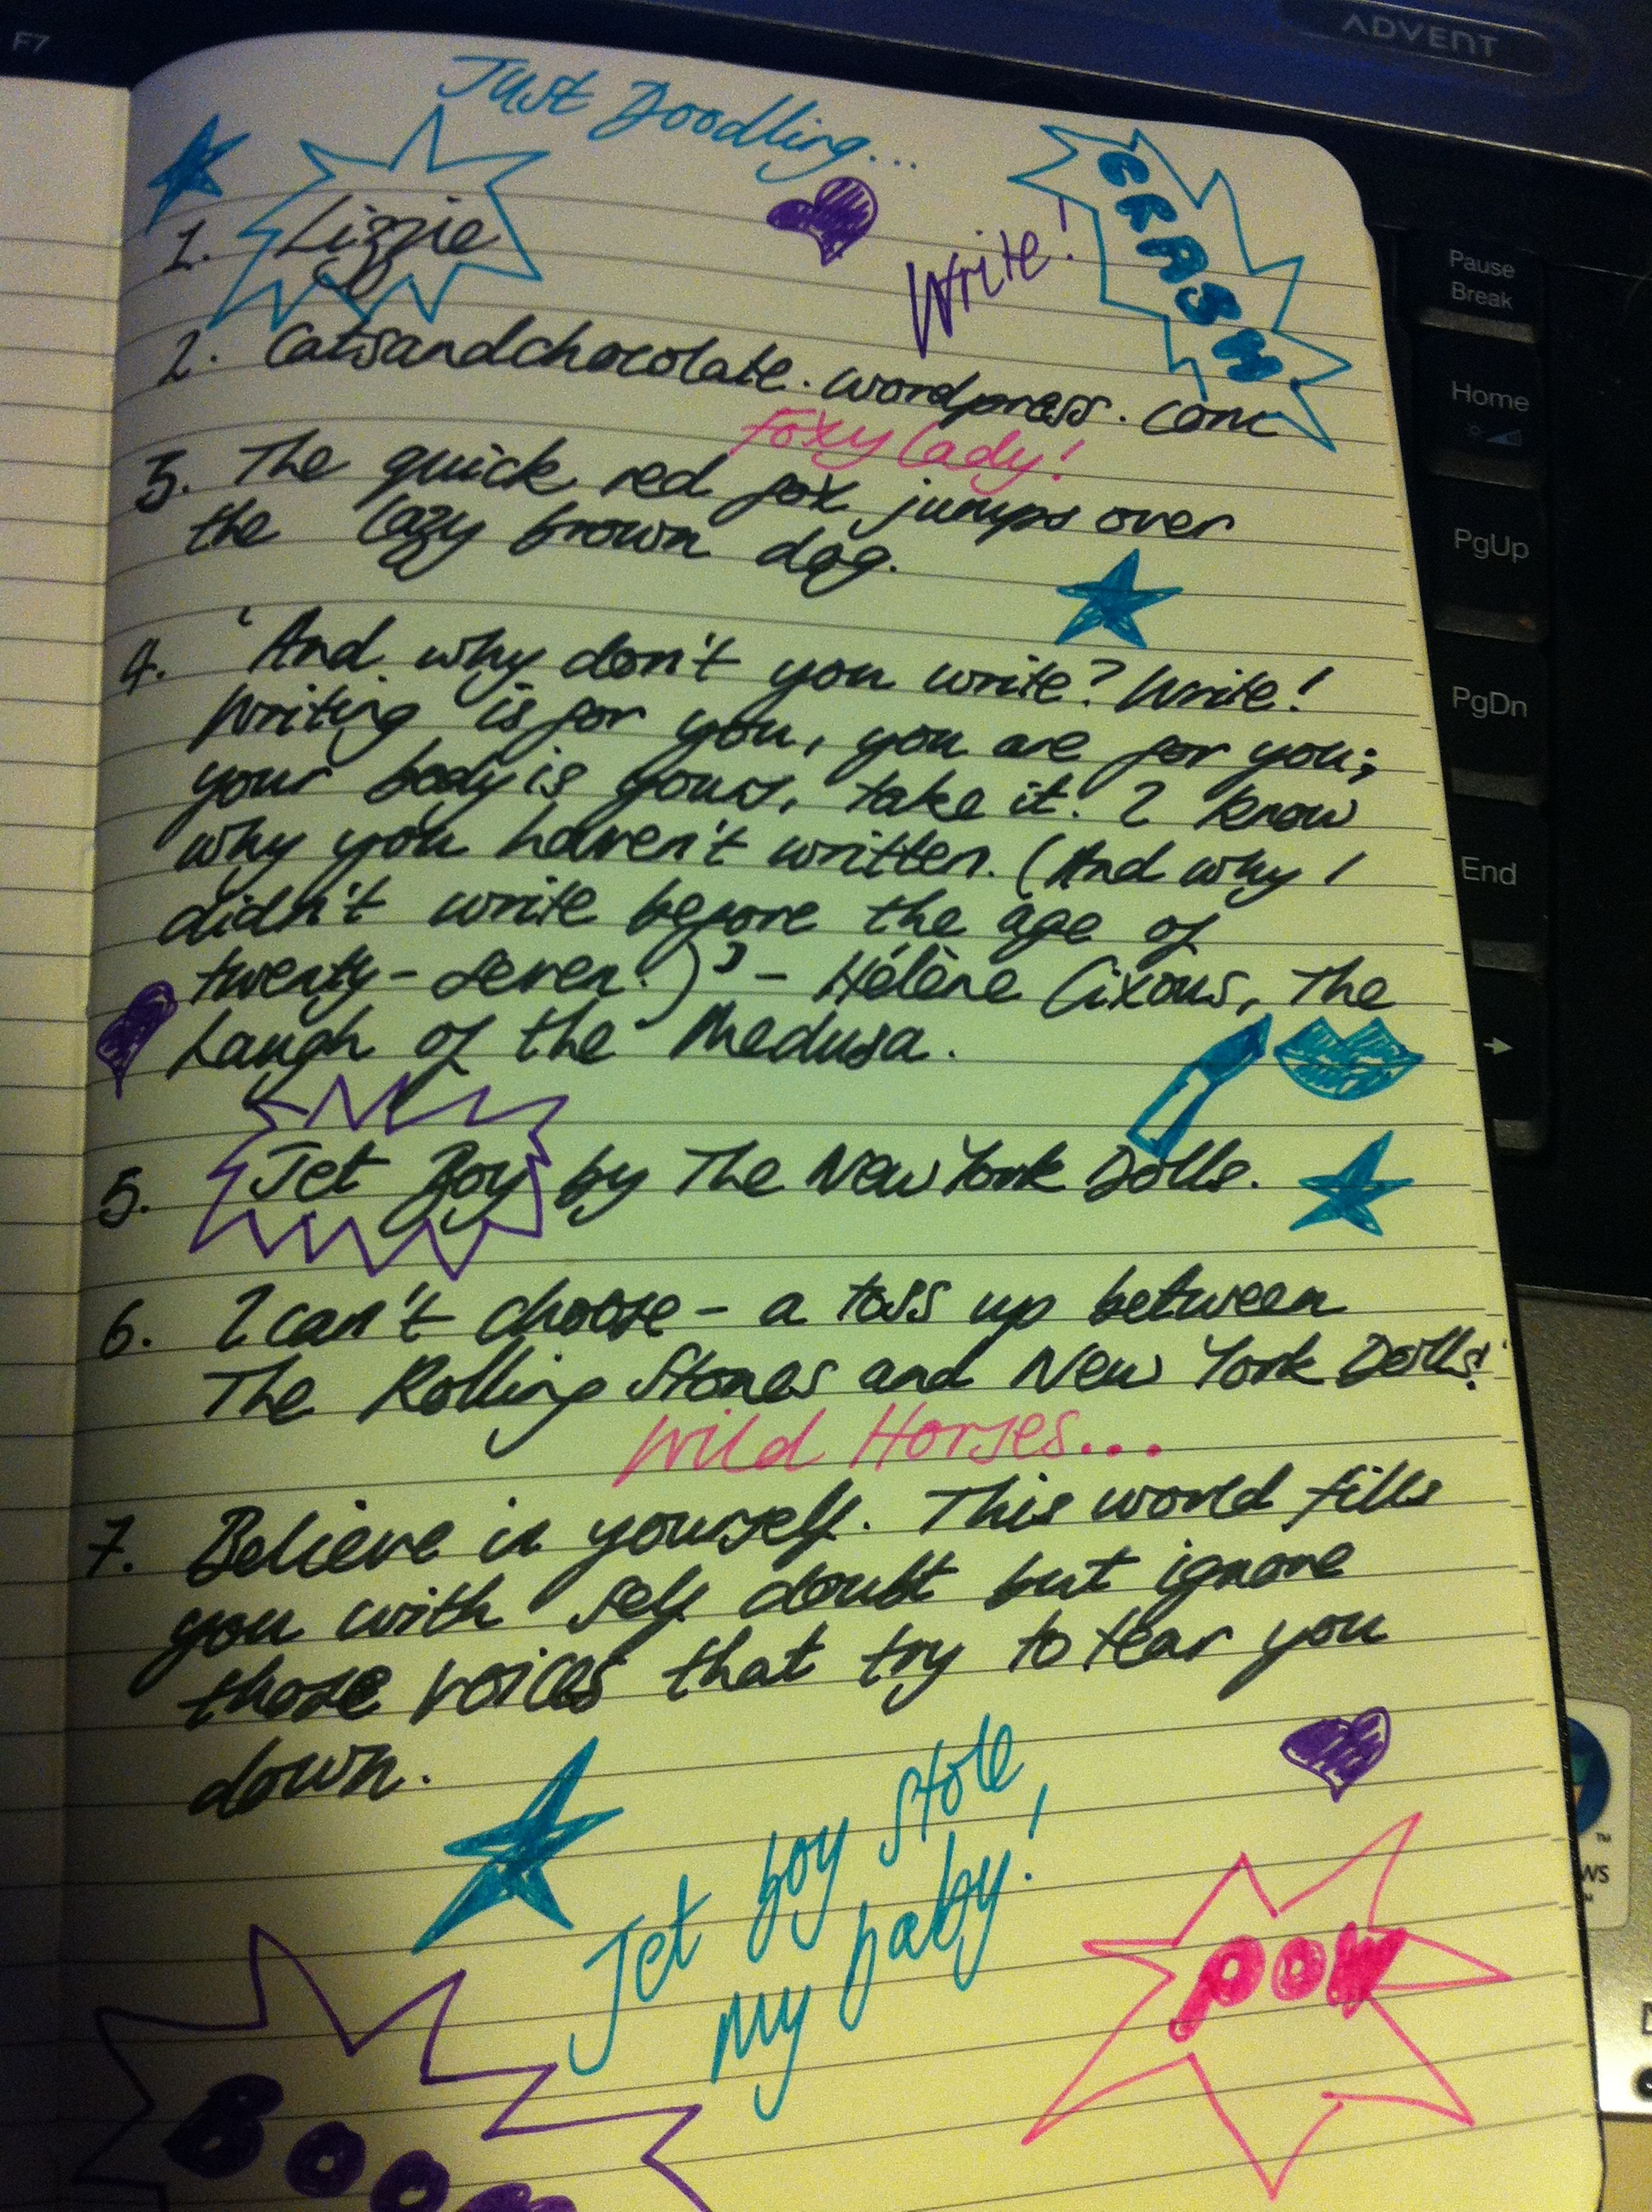 ADVENT
F7
Just Doodling...
CRASH
1. Lizzie
Write!
Pause
Break
2. Catsandchocolate.wordpress.com
Home
Foxy Lady!
3. The quick red fox jumps over
the lazy brown dog.
PgUp
4. 'And why don't you write? Write!
Writing is for you, you are for you;
your body is yours, take it. I know
why you haven't written. (And why I
didn't write before the age of
twenty-seven.)' - Hélène Cixous, The
Laugh of the Medusa.
PgDn
End
5. Jet Boy by The New York Dolls.
6. I can't choose - a toss up between
The Rolling Stones and New York Dolls!
Wild Horses...
7. Believe in yourself. This world fills
you with self doubt but ignore
those voices that try to tear you
down.
Jet boy stole
my baby!
POW
BOOM